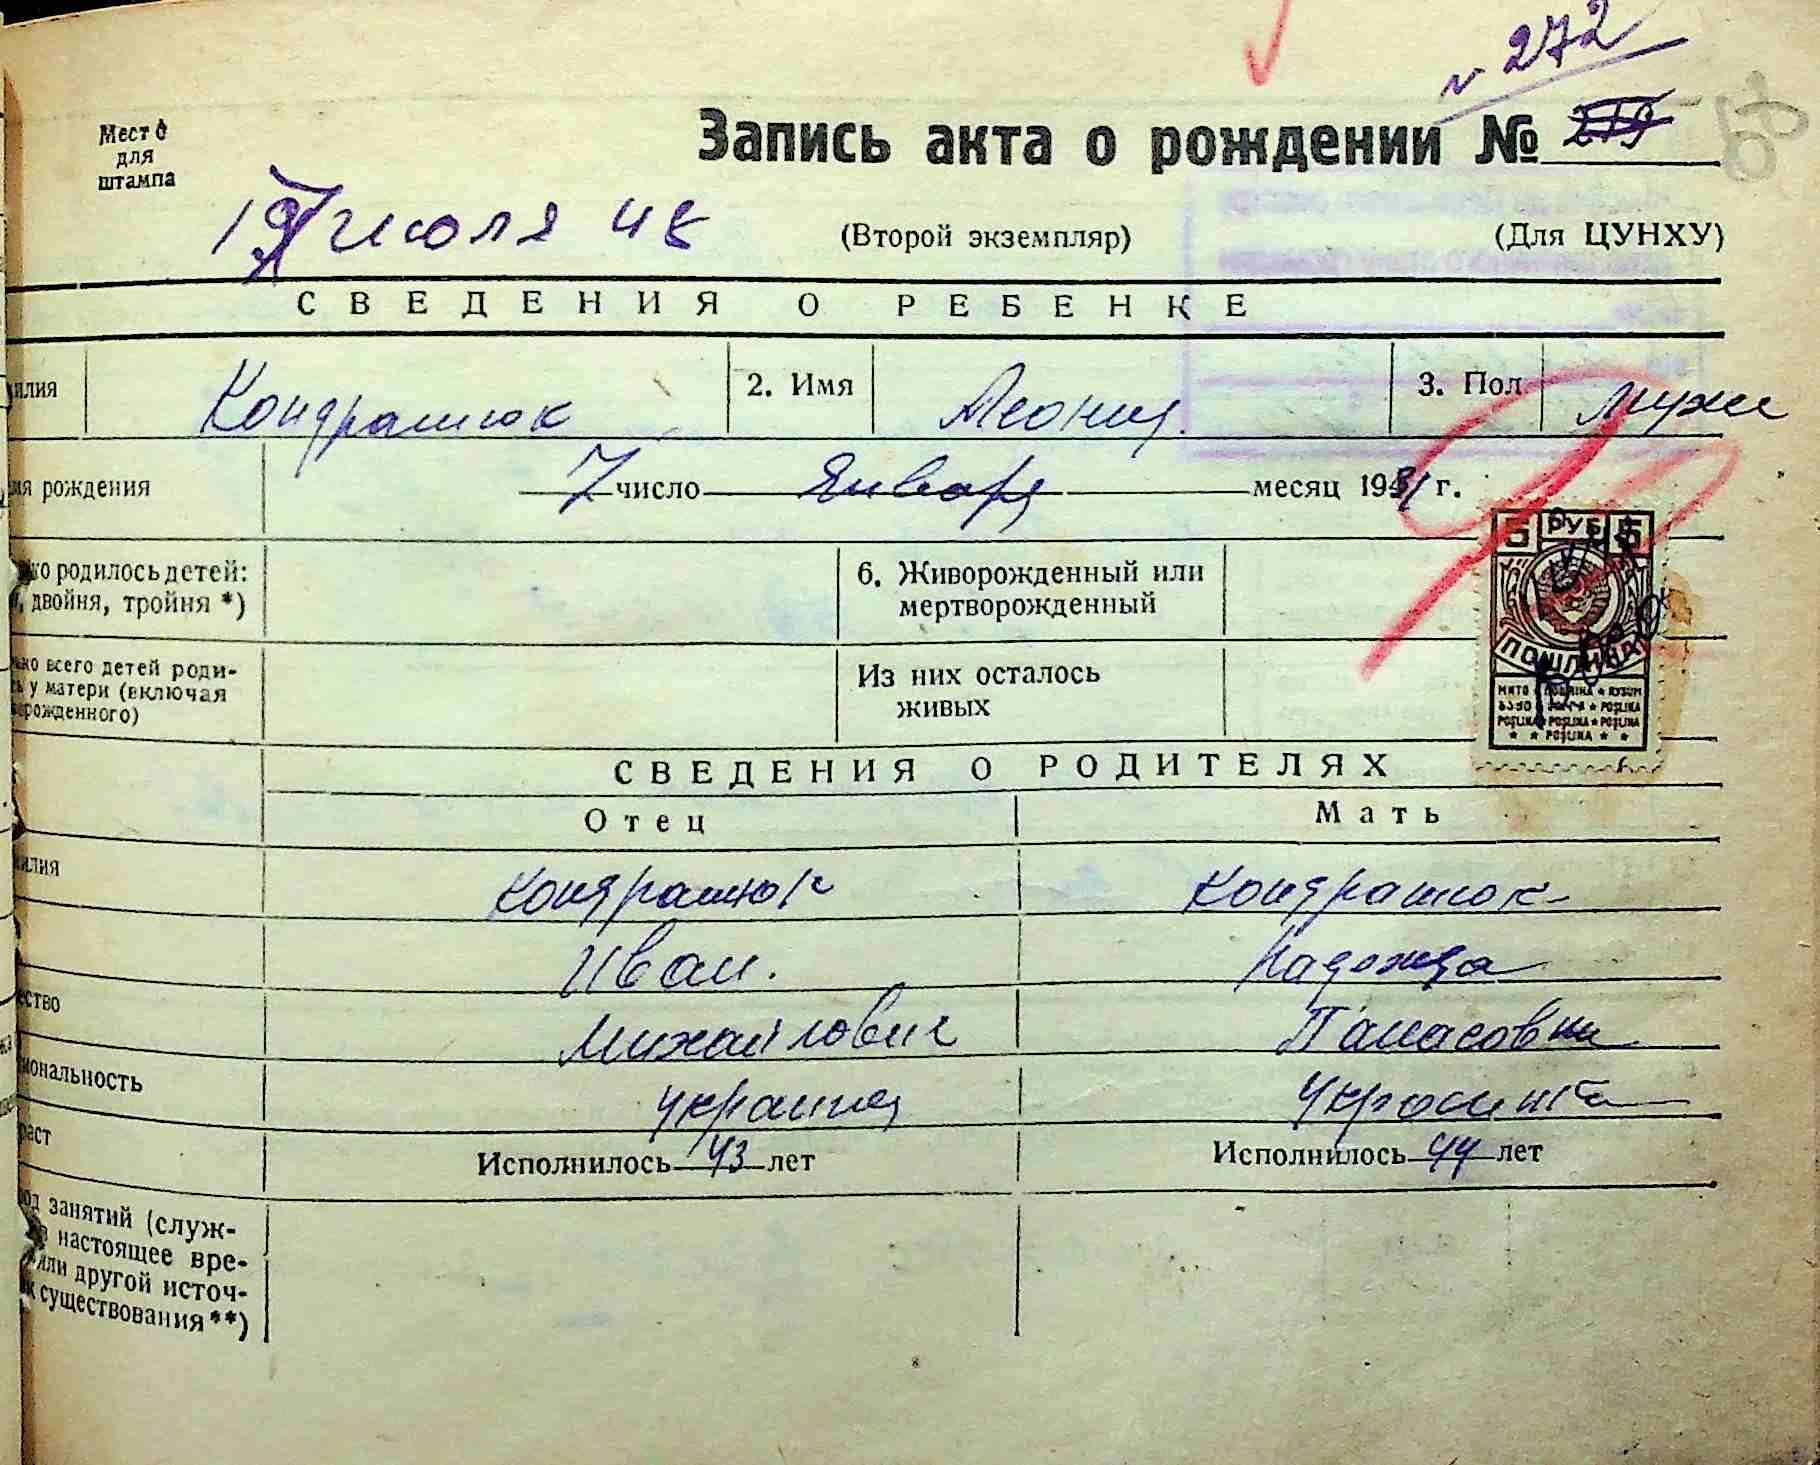 № 272
Место
для
штампа
Запись акта о рождении № 219
19 июля 48 (Второй экземпляр) (Для ЦУНХУ)
СВЕДЕНИЯ О РЕБЕНКЕ
илия Кондратюк 2. Имя Леонид. 3. Пол мужс
мя рождения 7 число Января месяц 1931 г.
ко родилось детей:
двойня, тройня *)
6. Живорожденный или
мертворожденный
ко всего детей роди-
ь у матери (включая
рожденного)
Из них осталось
живых
5 РУБ 5
ПОШЛИНА
СВЕДЕНИЯ О РОДИТЕЛЯХ
Отец Мать
илия Кондратюк Кондратюк
Иван. Надежда
ество Михайлович Панасовна
иональность украинец Украинка
раст Исполнилось 43 лет Исполнилось 44 лет
од занятий (служ-
настоящее вре-
или другой источ-
к существования **)